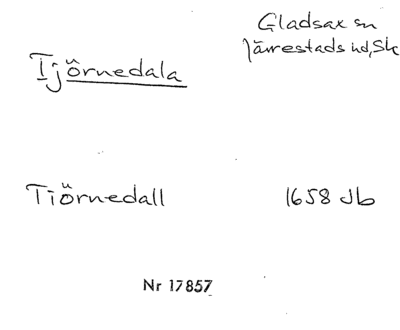 Gladsax sn
Järrestads hd, Sk
Tjörnedala
Tiörnedall 1658 Jb
Nr 17857